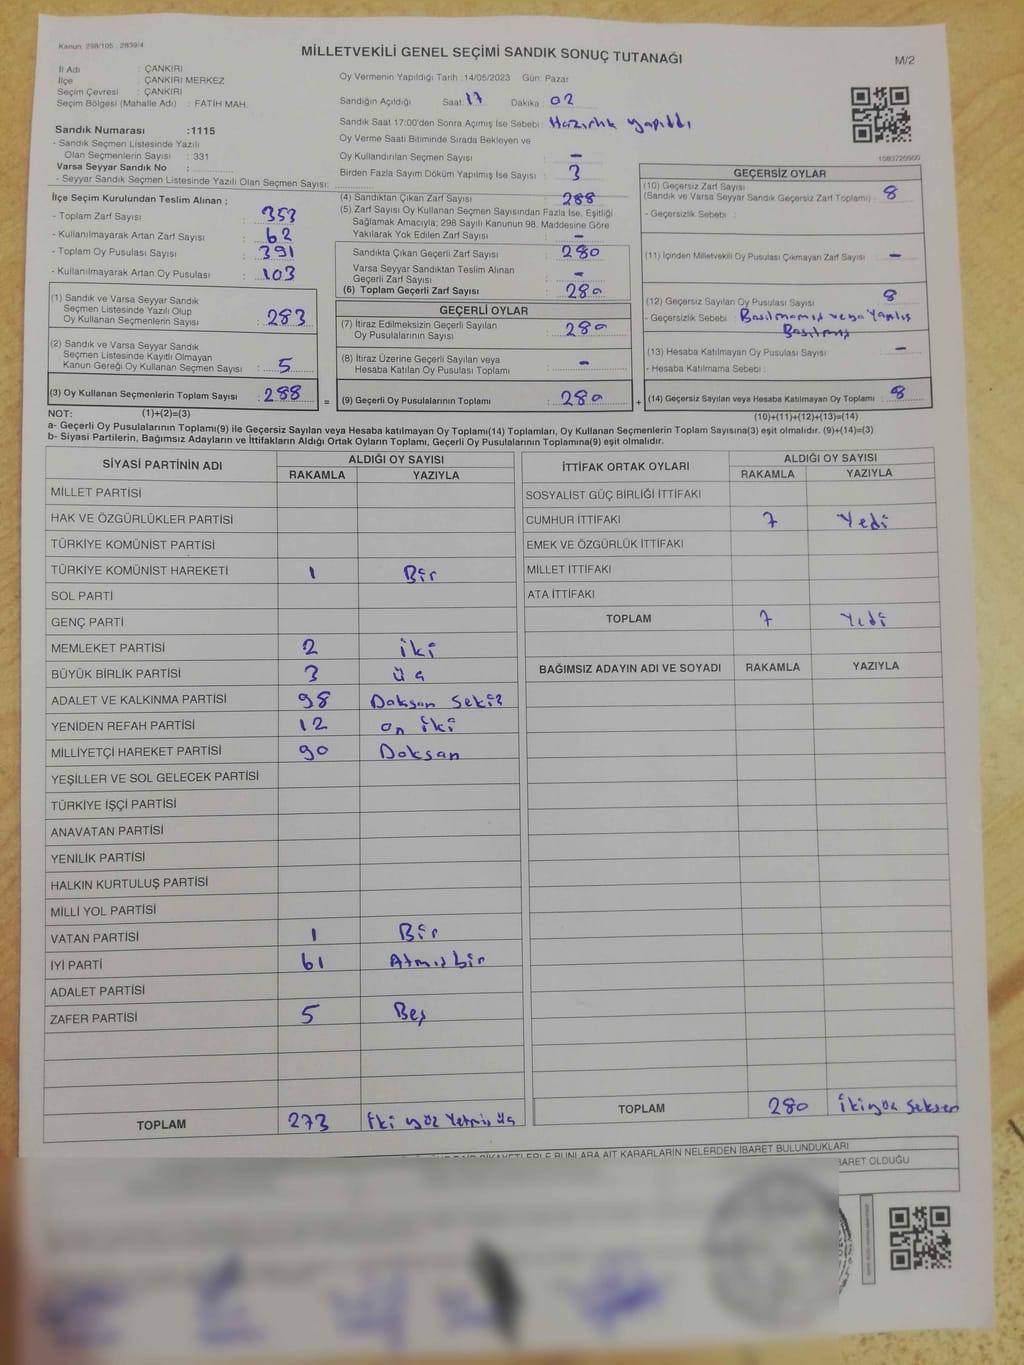 Kanun: 298/105 : 2839/4
MİLLETVEKİLİ GENEL SEÇİMİ SANDIK SONUÇ TUTANAĞI
M/2
İl Adı : ÇANKIRI
İlçe : ÇANKIRI MERKEZ
Seçim Çevresi : ÇANKIRI
Seçim Bölgesi (Mahalle Adı) : FATİH MAH.
Sandık Numarası :1115
- Sandık Seçmen Listesinde Yazılı
Olan Seçmenlerin Sayısı : 331
Varsa Seyyar Sandık No :
- Seyyar Sandık Seçmen Listesinde Yazılı Olan Seçmen Sayısı:
Oy Vermenin Yapıldığı Tarih :14/05/2023 Gün: Pazar
Sandığın Açıldığı Saat: 17 Dakika : 02
Sandık Saat 17:00'den Sonra Açımış İse Sebebi : Hazırlık yapıldı
Oy Verme Saati Bitiminde Sırada Bekleyen ve
Oy Kullandırılan Seçmen Sayısı : -
Birden Fazla Sayım Döküm Yapılmış İse Sayısı : 3
1083720900
İlçe Seçim Kurulundan Teslim Alınan ;
- Toplam Zarf Sayısı : 353
- Kullanılmayarak Artan Zarf Sayısı : 62
- Toplam Oy Pusulası Sayısı : 391
- Kullanılmayarak Artan Oy Pusulası : 103
(1) Sandık ve Varsa Seyyar Sandık
Seçmen Listesinde Yazılı Olup
Oy Kullanan Seçmenlerin Sayısı : 283
(2) Sandık ve Varsa Seyyar Sandık
Seçmen Listesinde Kayıtlı Olmayan
Kanun Gereği Oy Kullanan Seçmen Sayısı : 5
(3) Oy Kullanan Seçmenlerin Toplam Sayısı : 288
(4) Sandıktan Çıkan Zarf Sayısı : 288
(5) Zarf Sayısı Oy Kullanan Seçmen Sayısından Fazla İse, Eşitliği
Sağlamak Amacıyla; 298 Sayılı Kanunun 98. Maddesine Göre
Yakılarak Yok Edilen Zarf Sayısı : -
Sandıkta Çıkan Geçerli Zarf Sayısı : 280
Varsa Seyyar Sandıktan Teslim Alınan
Geçerli Zarf Sayısı : -
(6) Toplam Geçerli Zarf Sayısı : 280
GEÇERLİ OYLAR
(7) İtiraz Edilmeksizin Geçerli Sayılan
Oy Pusulalarının Sayısı : 280
(8) İtiraz Üzerine Geçerli Sayılan veya
Hesaba Katılan Oy Pusulası Toplamı : -
= (9) Geçerli Oy Pusulalarının Toplamı : 280
GEÇERSİZ OYLAR
(10) Geçersiz Zarf Sayısı
(Sandık ve Varsa Seyyar Sandık Geçersiz Zarf Toplamı) : 8
- Geçersizlik Sebebi :
(11) İçinden Milletvekili Oy Pusulası Çıkmayan Zarf Sayısı : -
(12) Geçersiz Sayılan Oy Pusulası Sayısı : 8
- Geçersizlik Sebebi : Basılmamış veya Yanlış
Basılmış
(13) Hesaba Katılmayan Oy Pusulası Sayısı : -
- Hesaba Katılmama Sebebi :
+ (14) Geçersiz Sayılan veya Hesaba Katılmayan Oy Toplamı : 8
NOT: (1)+(2)=(3)
(10)+(11)+(12)+(13)=(14)
a- Geçerli Oy Pusulalarının Toplamı(9) ile Geçersiz Sayılan veya Hesaba katılmayan Oy Toplamı(14) Toplamları, Oy Kullanan Seçmenlerin Toplam Sayısına(3) eşit olmalıdır. (9)+(14)=(3)
b- Siyasi Partilerin, Bağımsız Adayların ve İttifakların Aldığı Ortak Oyların Toplamı, Geçerli Oy Pusulalarının Toplamına(9) eşit olmalıdır.
SİYASİ PARTİNİN ADI ALDIĞI OY SAYISI
RAKAMLA YAZIYLA
MİLLET PARTİSİ
HAK VE ÖZGÜRLÜKLER PARTİSİ
TÜRKİYE KOMÜNİST PARTİSİ
TÜRKİYE KOMÜNİST HAREKETİ 1 Bir
SOL PARTİ
GENÇ PARTİ
MEMLEKET PARTİSİ 2 iki
BÜYÜK BİRLİK PARTİSİ 3 üç
ADALET VE KALKINMA PARTİSİ 98 Doksan Sekiz
YENİDEN REFAH PARTİSİ 12 on iki
MİLLİYETÇİ HAREKET PARTİSİ 90 Doksan
YEŞİLLER VE SOL GELECEK PARTİSİ
TÜRKİYE İŞÇİ PARTİSİ
ANAVATAN PARTİSİ
YENİLİK PARTİSİ
HALKIN KURTULUŞ PARTİSİ
MİLLİ YOL PARTİSİ
VATAN PARTİSİ 1 Bir
İYİ PARTİ 61 Atmış bir
ADALET PARTİSİ
ZAFER PARTİSİ 5 Beş
TOPLAM 273 İki yüz Yetmiş üç
İTTİFAK ORTAK OYLARI ALDIĞI OY SAYISI
RAKAMLA YAZIYLA
SOSYALİST GÜÇ BİRLİĞİ İTTİFAKI
CUMHUR İTTİFAKI 7 Yedi
EMEK VE ÖZGÜRLÜK İTTİFAKI
MİLLET İTTİFAKI
ATA İTTİFAKI
TOPLAM 7 Yedi
BAĞIMSIZ ADAYIN ADI VE SOYADI RAKAMLA YAZIYLA
TOPLAM 280 İkiyüz Seksen
BUNLARA AİT KARARLARIN NELERDEN İBARET BULUNDUKLARI
OLDUĞU